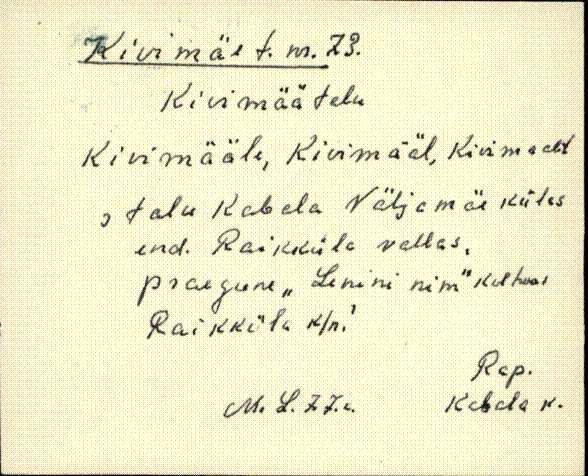 Kivimäe t. nr. 73.
Kivimäätalu
Kivimääle, Kivimääl, Kivimäält
, talu Kabala Väljamäe külas
end. Raikküla vallas,
praegune „Lenini nim" kolhoos
Raikküla k/n.
Rap.
M. L. Kabala k.